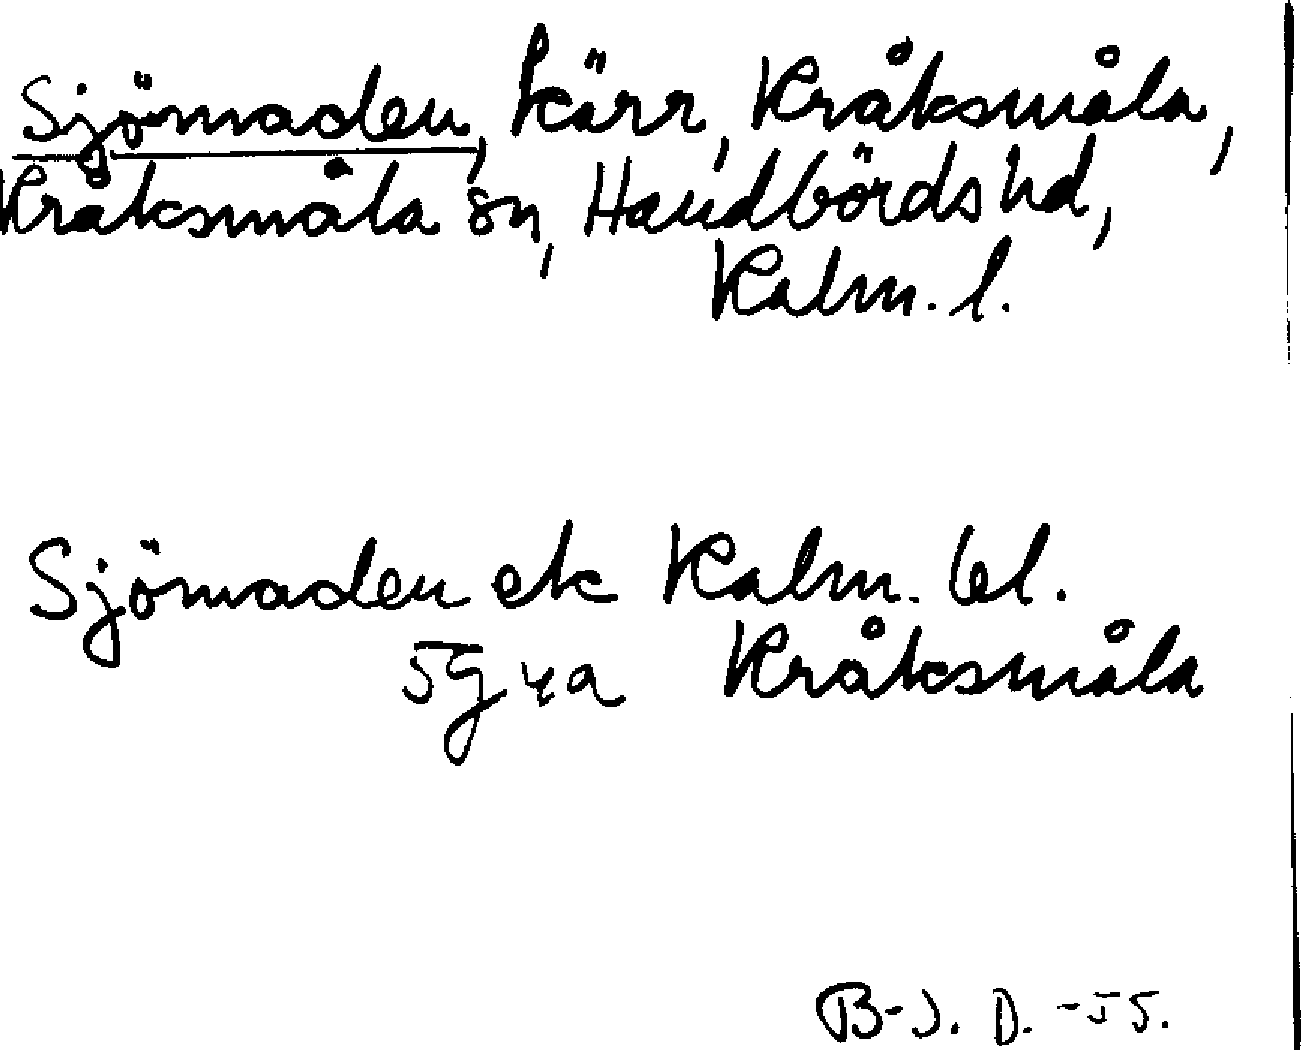 Sjömaden, kärr, Kråksmåla,
Kråksmåla sn, Handbörds hd,
Kalm. l.
Sjömaden ek Kalm. bl.
5g4a Kråksmåla
B-J. D. -55.